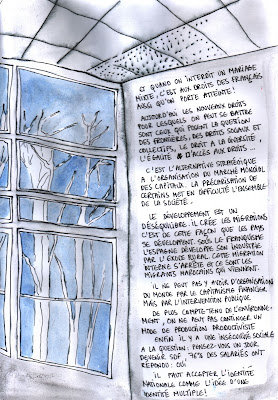 ET QUAND ON INTERDIT UN MARIAGE
MIXTE, C'EST AUX DROITS DES FRANÇAIS
AUSSI QU'ON PORTE ATTEINTE!
AUJOURD'HUI LES NOUVEAUX DROITS
POUR LESQUELS ON PEUT SE BATTRE
SONT CEUX QUI POSENT LA QUESTION
DES FRONTIÈRES, DES DROITS SOCIAUX ET
COLLECTIFS, LE DROIT A LA DIVERSITÉ,
L'ÉGALITÉ D'ACCÈS AUX DROITS...
C'EST L'ALTERNATIVE STRATÉGIQUE
A L'ORGANISATION DU MARCHÉ MONDIAL
DES CAPITAUX. LA PRÉCARISATION DE
CERTAINS MET EN DIFFICULTÉ L'ENSEMBLE
DE LA SOCIÉTÉ.
LE DÉVELOPPEMENT EST UN
DÉSÉQUILIBRE. IL CRÉE LES MIGRATIONS
C'EST DE CETTE FAÇON QUE LES PAYS
SE DÉVELOPPENT. SOUS LE FRANQUISME
L'ESPAGNE DÉVELOPPE SON INDUSTRIE
PAR L'EXODE RURAL. CETTE MIGRATION
INTERNE S'ARRÊTE ET CE SONT LES
MIGRANTS MAROCAINS QUI VIENNENT.
IL NE PEUT PAS Y AVOIR D'ORGANISATION
DU MONDE PAR LE CAPITALISME FINANCIER
MAIS PAR L'INTERVENTION PUBLIQUE.
DE PLUS COMPTE-TENU DE L'ENVIRONNE-
MENT, ON NE PEUT PAS CONTINUER UN
MODE DE PRODUCTION PRODUCTIVISTE
ENFIN IL Y A UNE INSÉCURITÉ SOCIALE
A LA QUESTION: PENSEZ-VOUS UN JOUR
DEVENIR SDF, 76% DES SALARIÉS ONT
RÉPONDU: OUI
IL FAUT ACCEPTER L'IDENTITÉ
NATIONALE COMME L'IDÉE D'UNE
IDENTITÉ MULTIPLE!